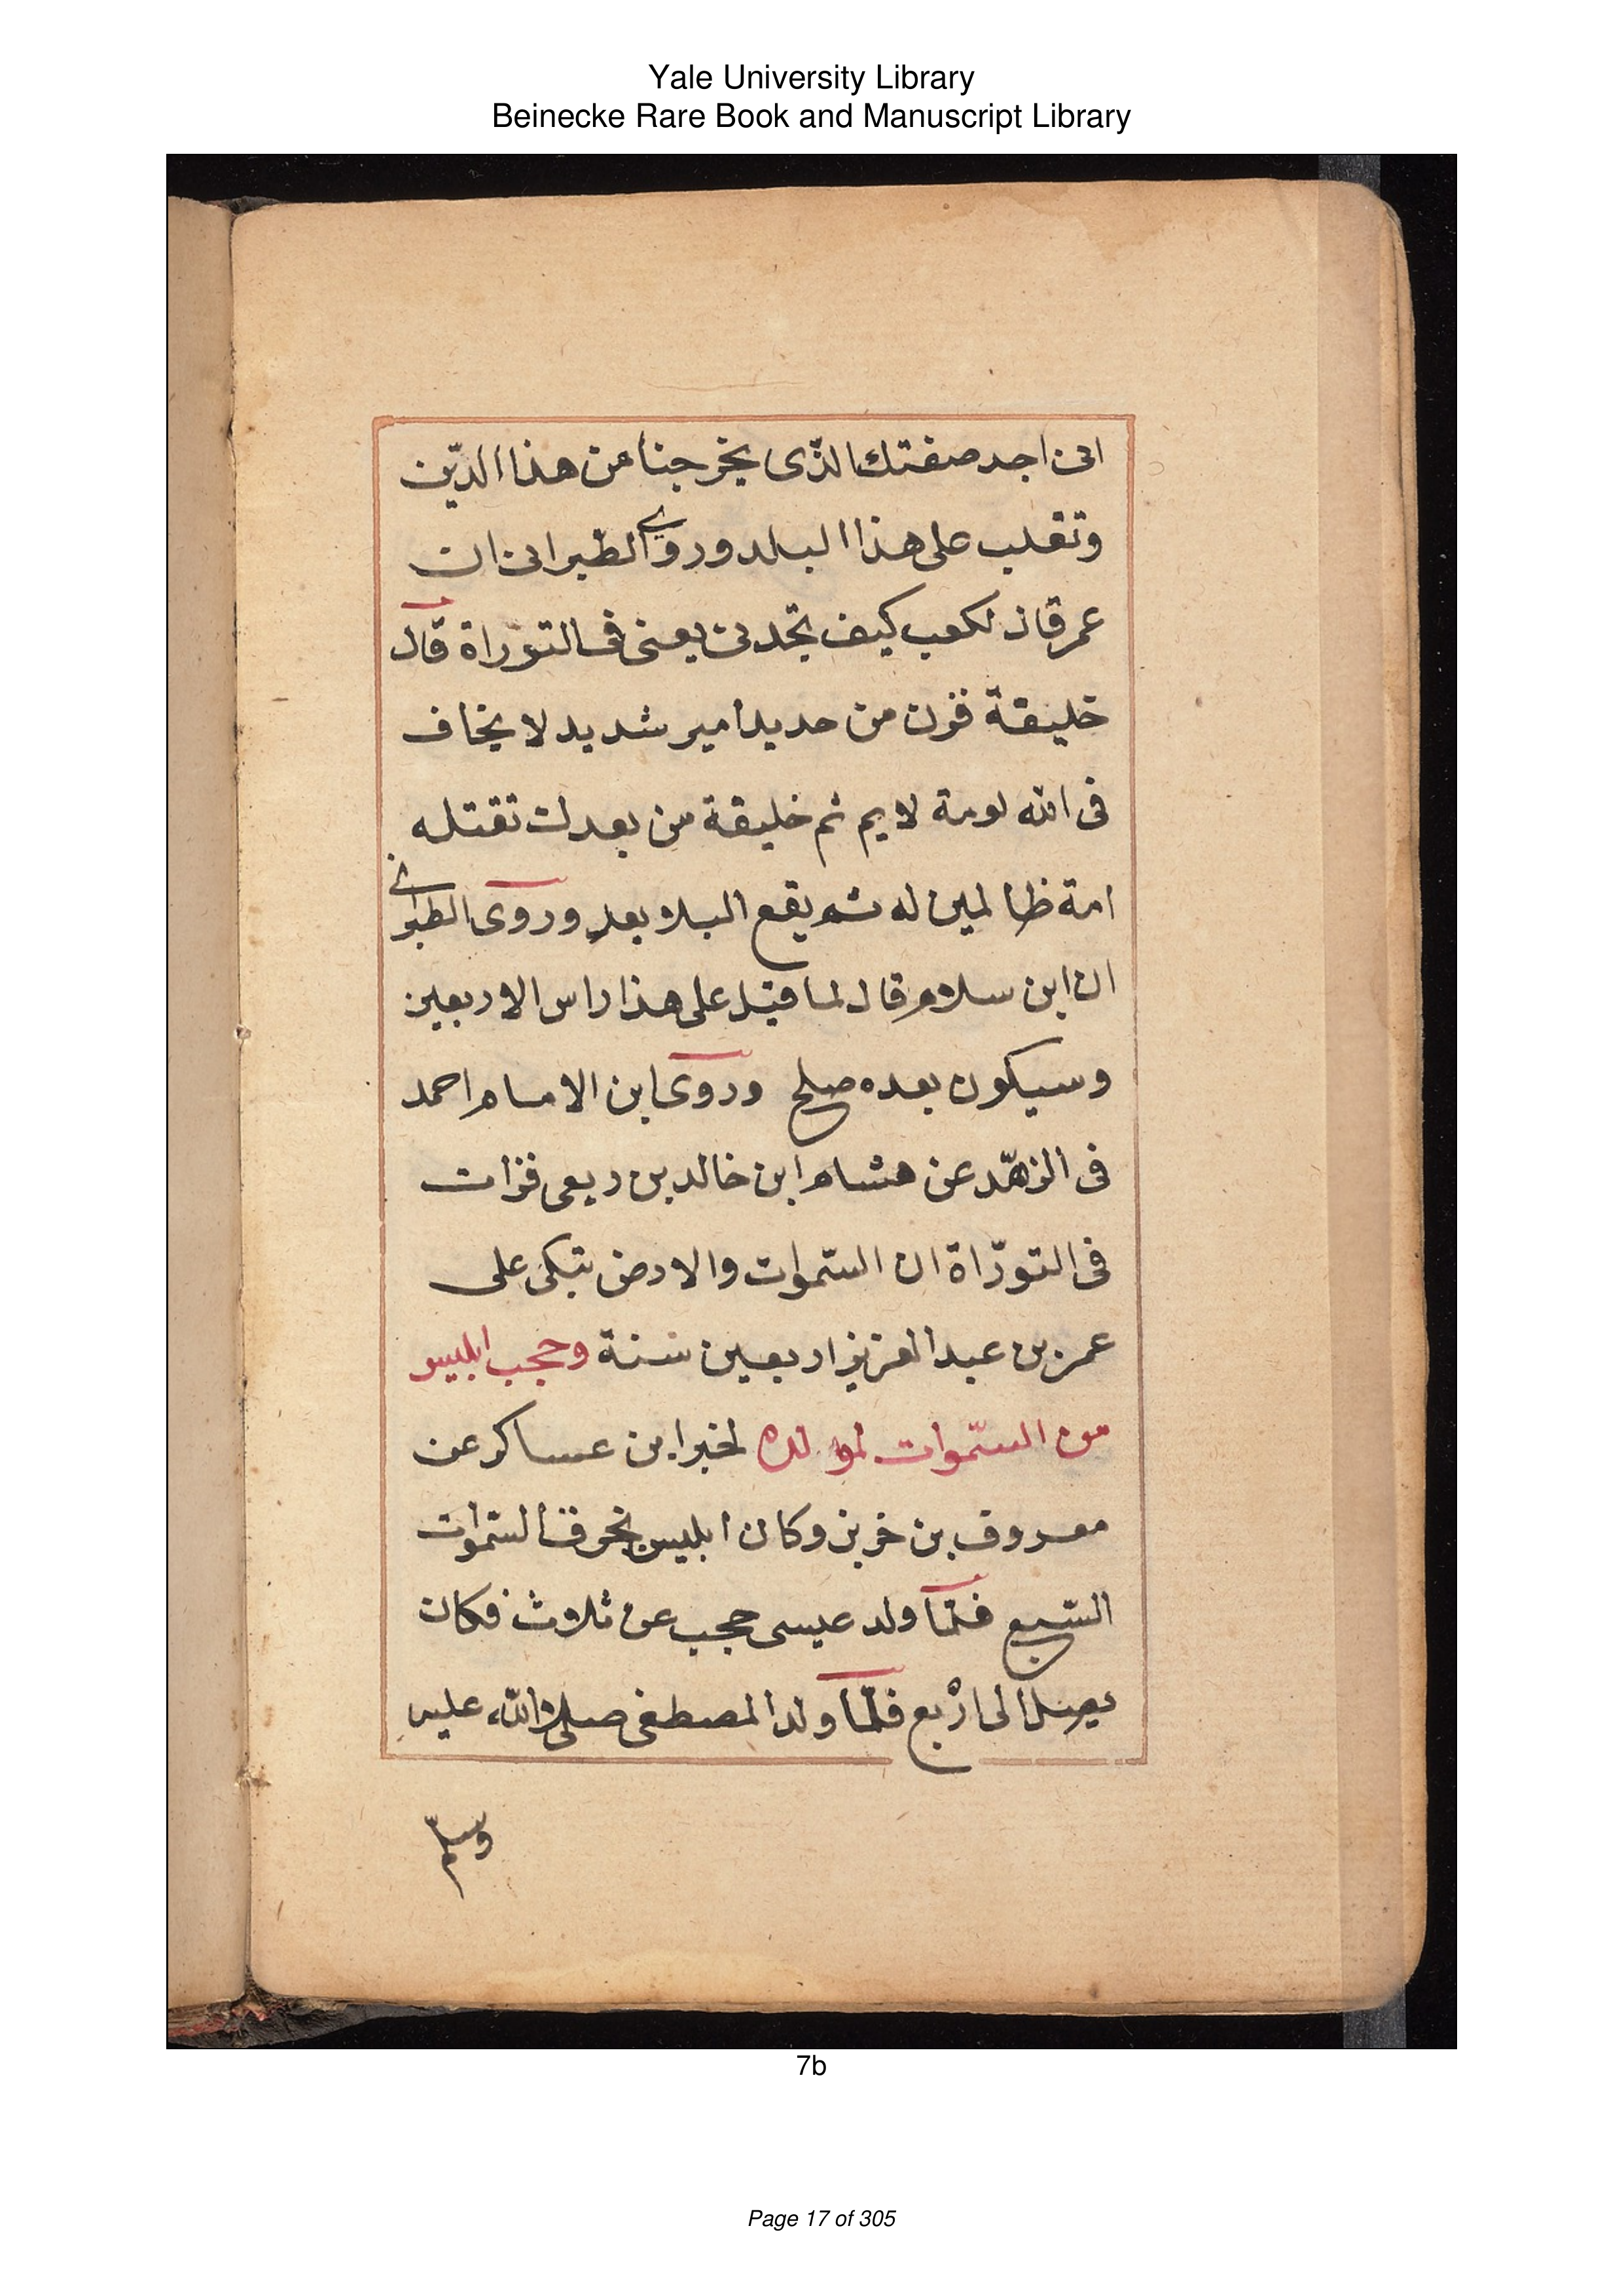 Yale University Library
Beinecke Rare Book and Manuscript Library
انى اجد صفتك الذّى يخرجنا من هذا الدّين
وتغلب على هذا البلد وروى الطبرانى ان
عمر قال لكعب كيف تجدنى يعنى فى التوراة قال
خليفة قرن من حديد امير شديد لا يخاف
فى الله لومة لايم ثم خليفة من بعدك تقتله
امة ظالمين له ثم يقع البلا بعد وروى الطبرانى
ان ابن سلام قال لما قتل على هذا راس الاربعين
وسيكون بعده صلح وروى ابن الامام احمد
فى الزهّد عن هشام ابن خالد بن ربعى قرات
فى التورّاة ان السّموات والارض تبكى على
عمر بن عبد العزيز اربعين سنة وحجب ابليس
من السّموات لمولده لخبر ابن عساكر عن
معروف بن خربز وكان ابليس يخرق السّموات
السّبع فلمّا ولد عيسى حجب عن ثلاث فكان
يصل الى اربع فلمّا ولد المصطفى صلى الله عليه
وسلّم
7b
Page 17 of 305